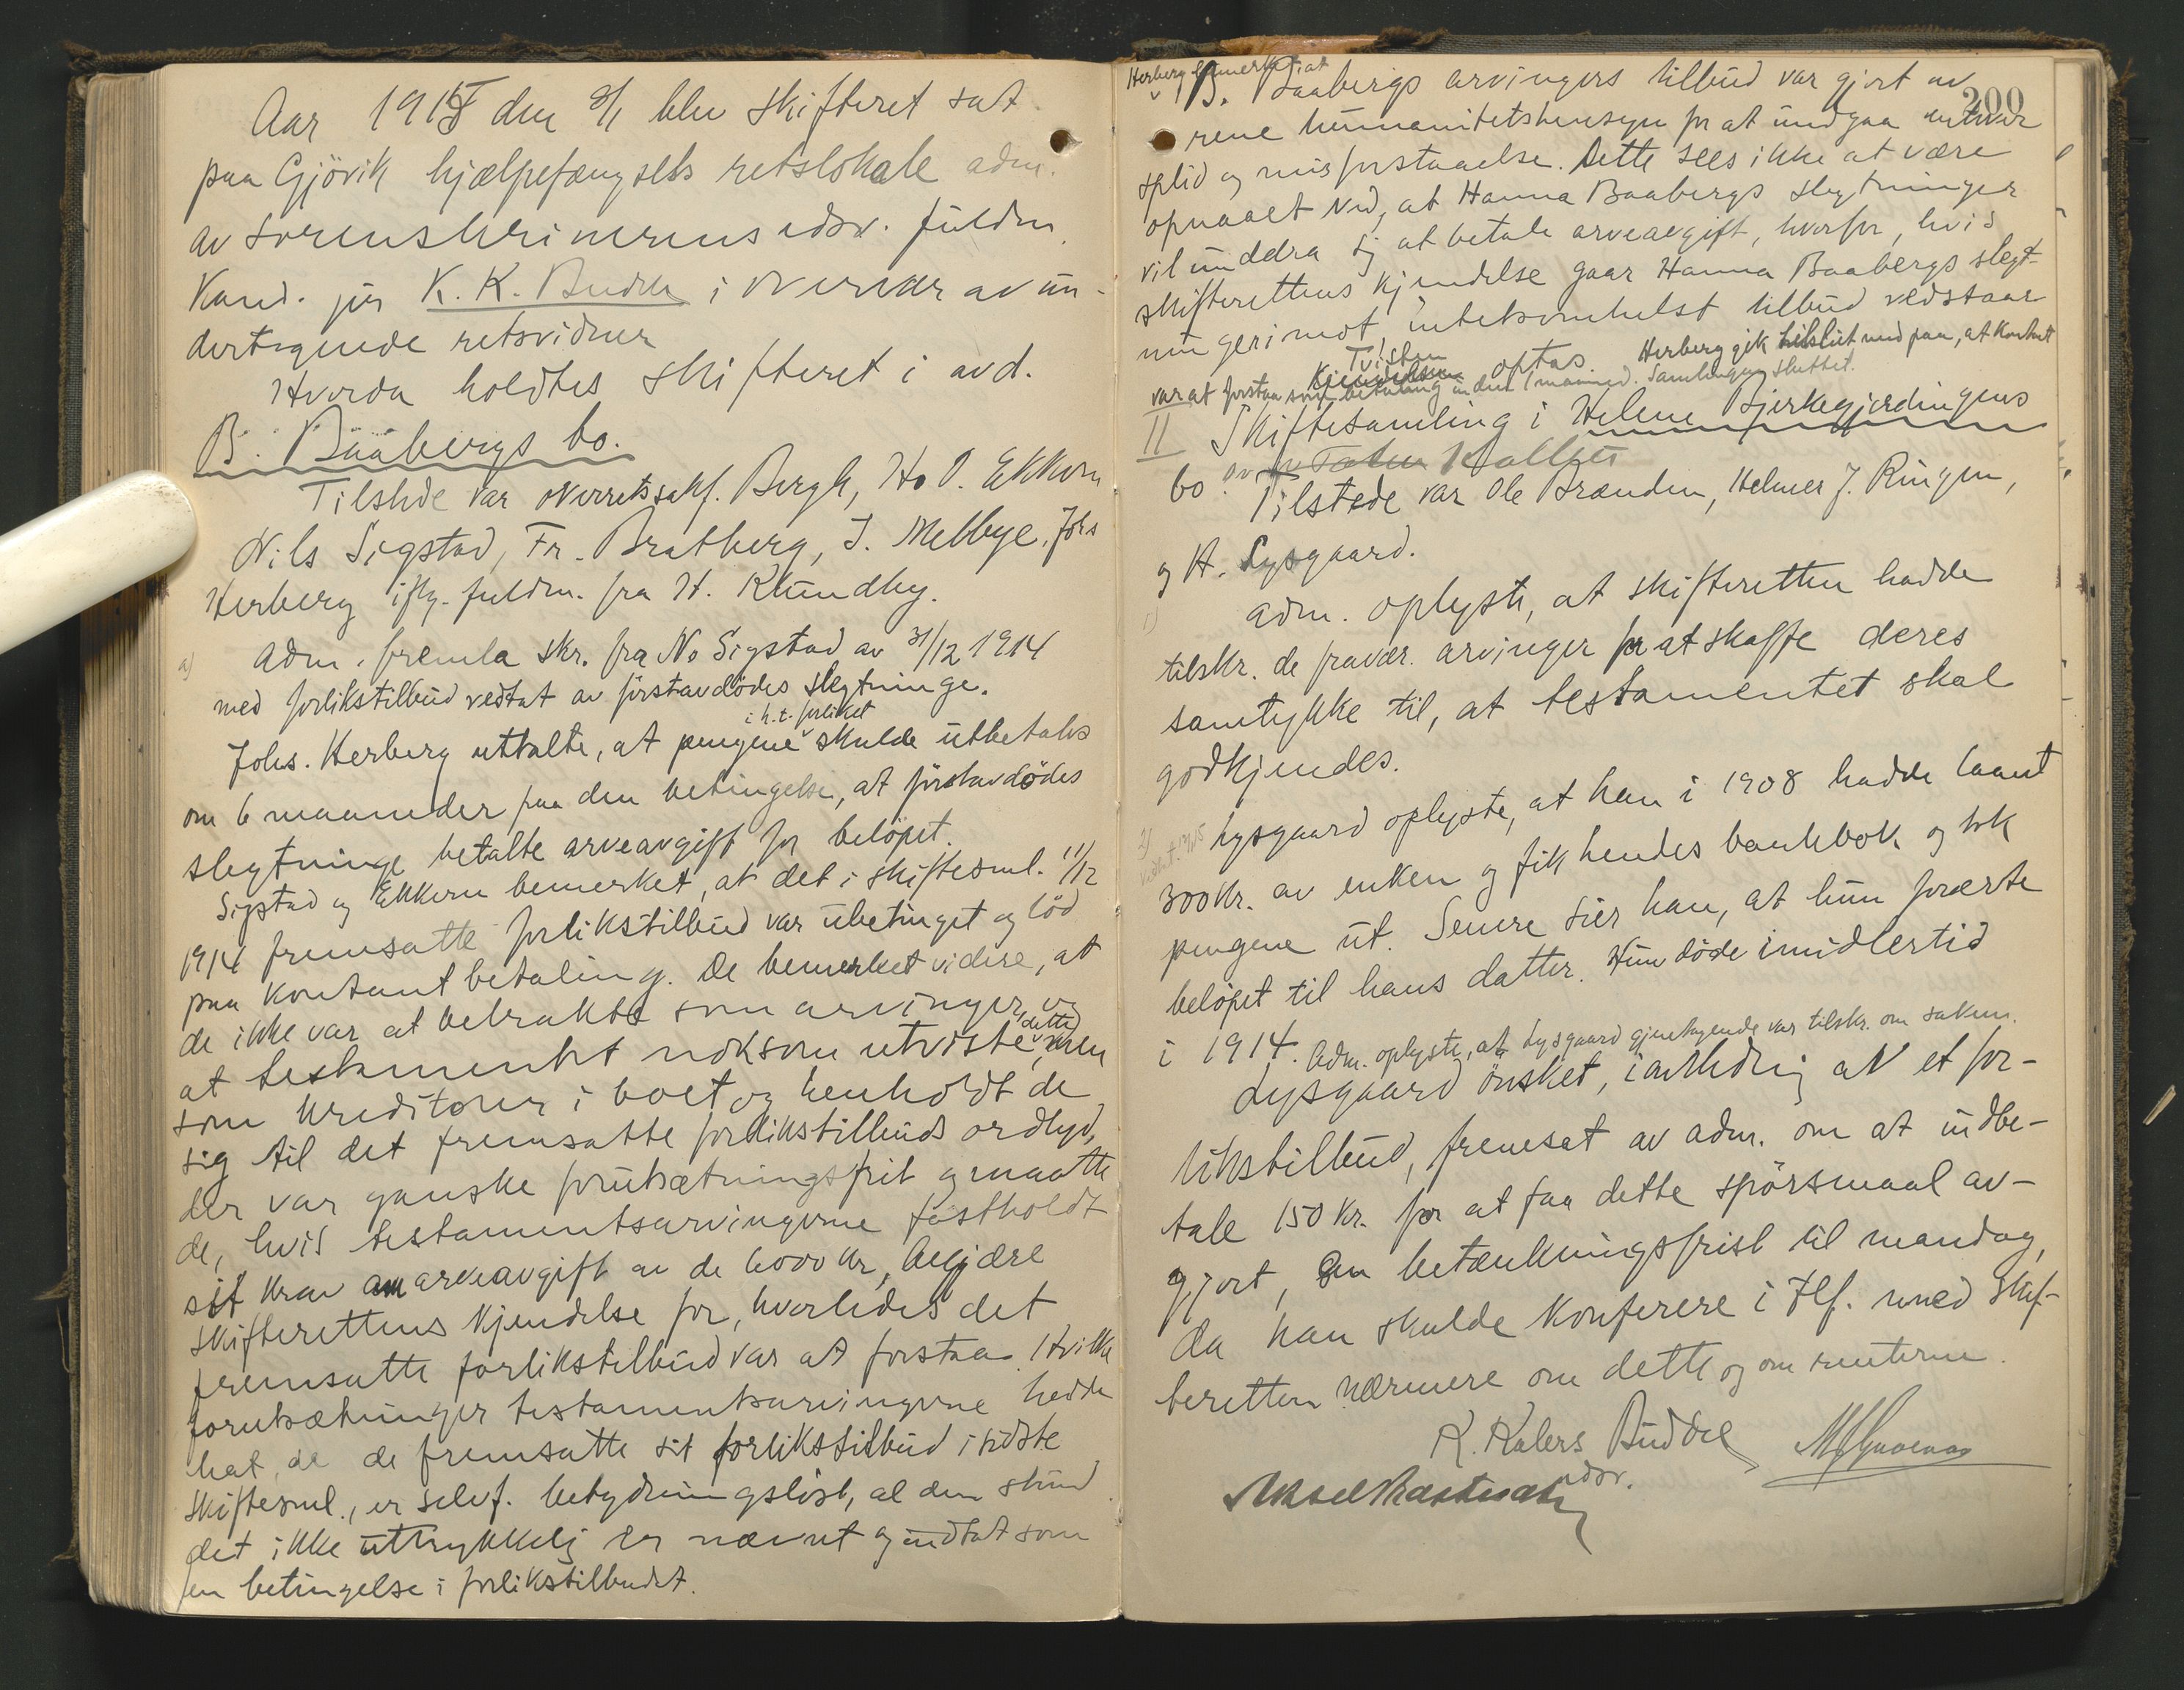 Aar 1915 den 9/1 blev skifteret sat
paa Gjövik hjælpefængsels retslokale adm.
av sorenskriverens edsv. fuldm.
Kand. jur K. K. Budde i overvær av un-
dertegnede retsvidner
Hvorda holdtes skifteret i avd.
B. Baabergs bo.
Tilstede var overretssakf. Bergh, H. O. Ekkern
Nils Sigstad, Fr. Bratberg, J. Melbye, Johs
Herberg iflg. fuldm. fra H. Klundby.
a) Adm. fremla skr. fra N. Sigstad av 31/12 1914
med forlikstilbud vedtat av förstavdödes slegtninge.
i h. t. forliket
Johs. Herberg uttalte, at pengene skulde utbetales
om 6 maaneder paa den betingelse, at förstavdödes
slegtninge betalte arveavgift for belöpet.
Sigstad og Ekkern bemerket, at det i skiftesml. 11/12
1914 fremsatte forlikstilbud var ubetinget og löd
paa kontant betaling. De bemerket videre, at
de ikke var at betrakte som arvinger, og
at testamentet noksom utviste dette, men
som kreditorer i boet og henholdt de
sig til det fremsatte forlikstilbuds ordlyd,
der var ganske forutsætningsfrit og maatte
de, hvis testamentsarvingerne fastholdt
sit krav om arveavgift av de 6000 kr, begjære
skifterettens kjendelse for, hvorledes det
fremsatte forlikstilbud var at forstaa. Hvilke
forutsætninger testamentsarvingerne hadde
hat, da de fremsatte sit forlikstilbud i sidste
skiftesml., er selvf. betydningslöst, al den stund
det ikke uttrykkelig er nævnt og indtat som
en betingelse i forlikstilbudet.
200
Herberg bemerket at
B. Baabergs arvingers tilbud var gjort av
rene humanitetshensyn for at undgaa enhver
splid og misforstaaelse. Dette sees ikke at være
opnaaet ved, at Hanna Baabergs slegtninger
vil unddra sig at betale arveavgift, hvorfor, hvis
skifterettens kjendelse gaar Hanna Baabergs slegt-
ninger imot, intetsomhelst tilbud vedstaar
Tvisten
Kjendelsen optas. Herberg gik tilslut med paa, at kontant
var at forstaa som betaling inden 1 maaned. Samlingen sluttet.
II Skiftesamling i Helene Bjerkegjerdingens
bo av
Tilstede var Ole Brænden, Helmer J. Ringen,
og H. Lysgaard.
1) Adm. oplyste, at skifteretten hadde
tilskr. de fravær. arvinger for at skaffe deres
samtykke til, at testamentet skal
godkjendes.
2) Lysgaard oplyste, at han i 1908 hadde laant
300 kr. av enken og fik hendes bankbok og tok
pengene ut. Senere sier han, at hun forærte
belöpet til hans datter. Hun döde imidlertid
i 1914. Adm. oplyste, at Lysgaard gjentagende var tilskr. om saken.
Lysgaard önsket, i anledning av et for-
likstilbud, fremsat av adm. om at indbe-
tale 150 kr. for at faa dette spörsmaal av-
gjort, en betænkningsfrist til mandag,
da han skulde konferere i Tlf. med skif-
teretten nærmere om dette og om renterne.
K. Kolers Budde
edsv.